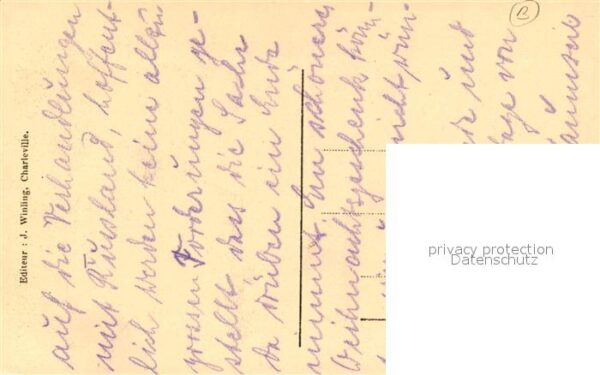 Editeur : J. Winling, Charleville.
auf die Verhandlungen
mit Russland, hoffent-
lich werden keine allzu
grossen Forderungen ge-
stellt dass die Sache
da drüben ein Ende
nimmt. Ein schöneres
Weihnachtsgeschenk kön-
nicht
und
von
B
privacy protection
Datenschutz